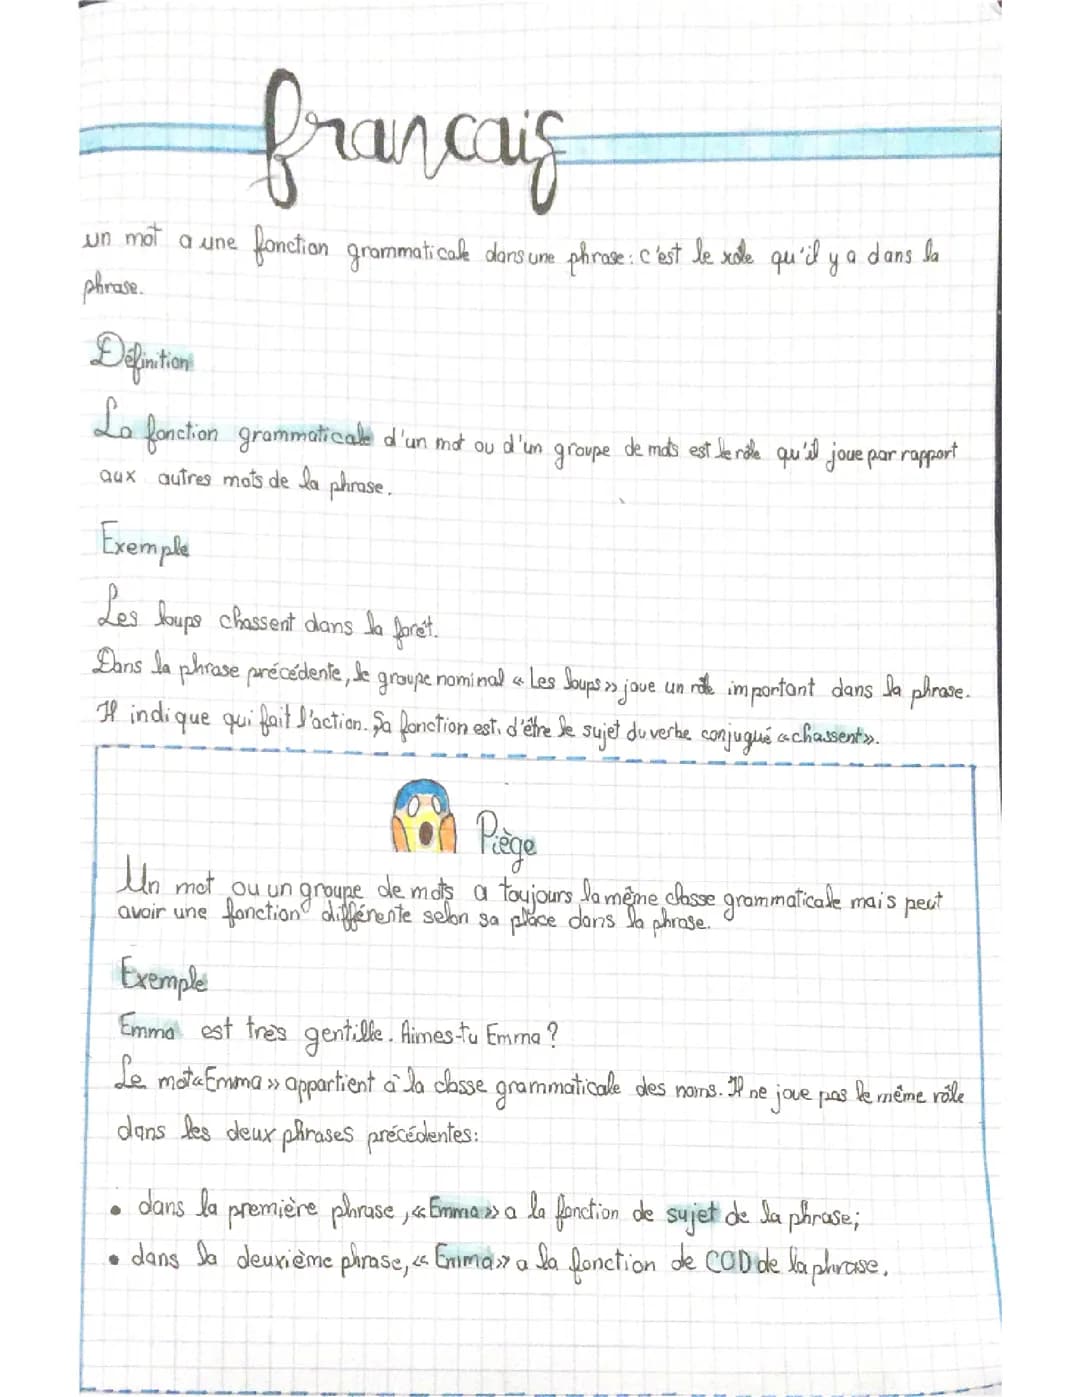 francais
un mot a une fonction grammaticale dans une phrase : c'est le role qu'il y a dans la
phrase.
Définition
La fonction grammaticale d'un mot ou d'un groupe de mots est le rôle qu'il joue par rapport
aux autres mots de la phrase.
Exemple
Les loups chassent dans la forêt.
Dans la phrase précédente, le groupe nominal « Les loups » joue un rôle important dans la phrase.
Il indique qui fait l'action. Sa fonction est, d'être le sujet du verbe conjugué « chassent ».
Piège
Un mot ou un groupe de mots a toujours la même classe grammaticale mais peut
avoir une fonction différente selon sa place dans la phrase.
Exemple
Emma est très gentille. Aimes-tu Emma ?
Le mot « Emma » appartient à la classe grammaticale des noms. Il ne joue pas le même rôle
dans les deux phrases précédentes :
• dans la première phrase, « Emma » a la fonction de sujet de la phrase ;
• dans la deuxième phrase, « Emma » a la fonction de COD de la phrase.